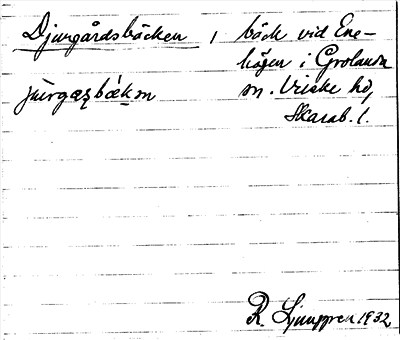 Djurgårdsbäcken, bäck vid Ene-
högen i Grolanda
sn. Vriske hd,
Skarab. l.
R. Ljunggren 1932